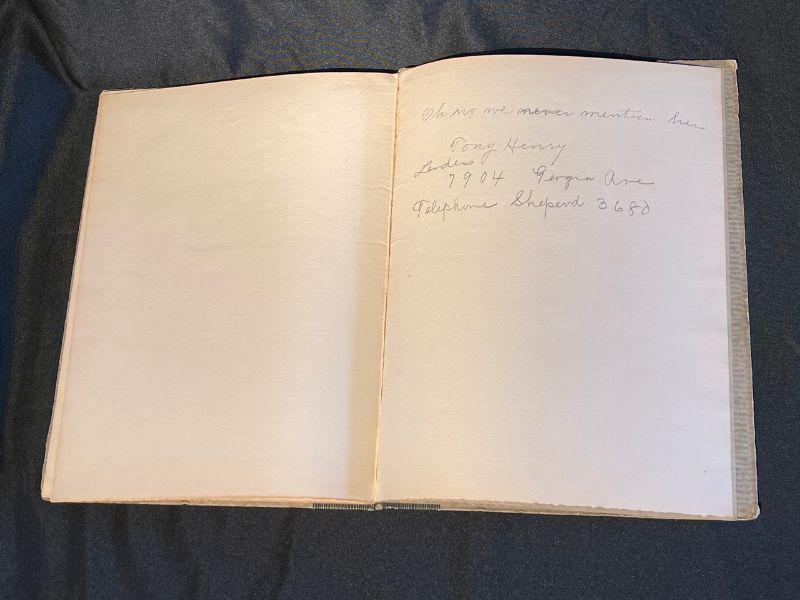 Oh no we never mention her
Tony Henry
Landess
7904 Gergia Ave
Telephone Sheperd 3680